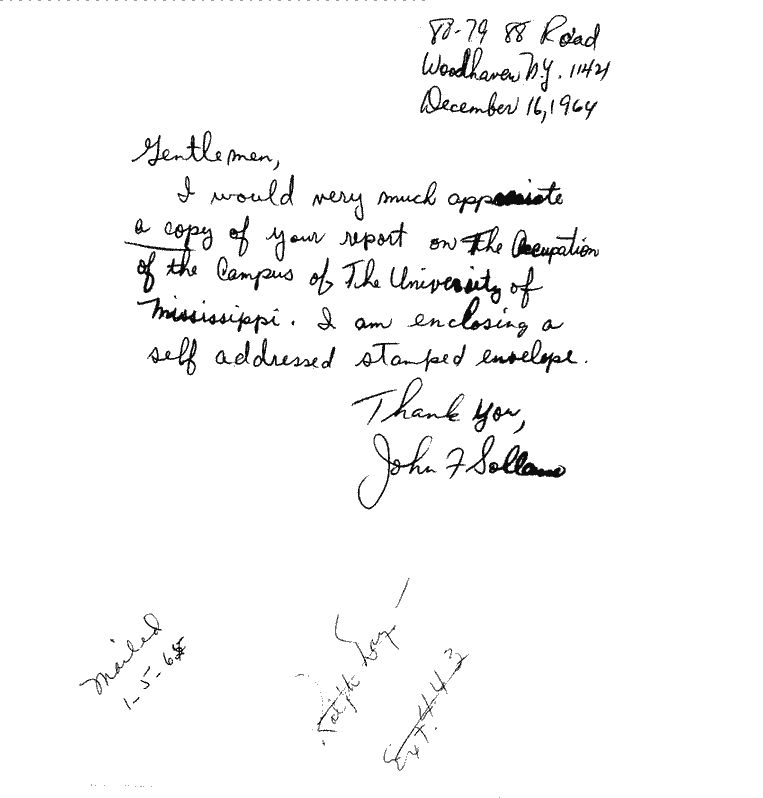 88-79 88 Road
Woodhaven N.Y. 11421
December 16, 1964
Gentlemen,
I would very much appreciate
a copy of your report on The Occupation
of the Campus of The University of
Mississippi. I am enclosing a
self addressed stamped envelope.
Thank you,
John F
Mailed
1-5-65
Ralph
Ext. 443